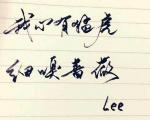 我心有猛虎
细嗅蔷薇
Lee